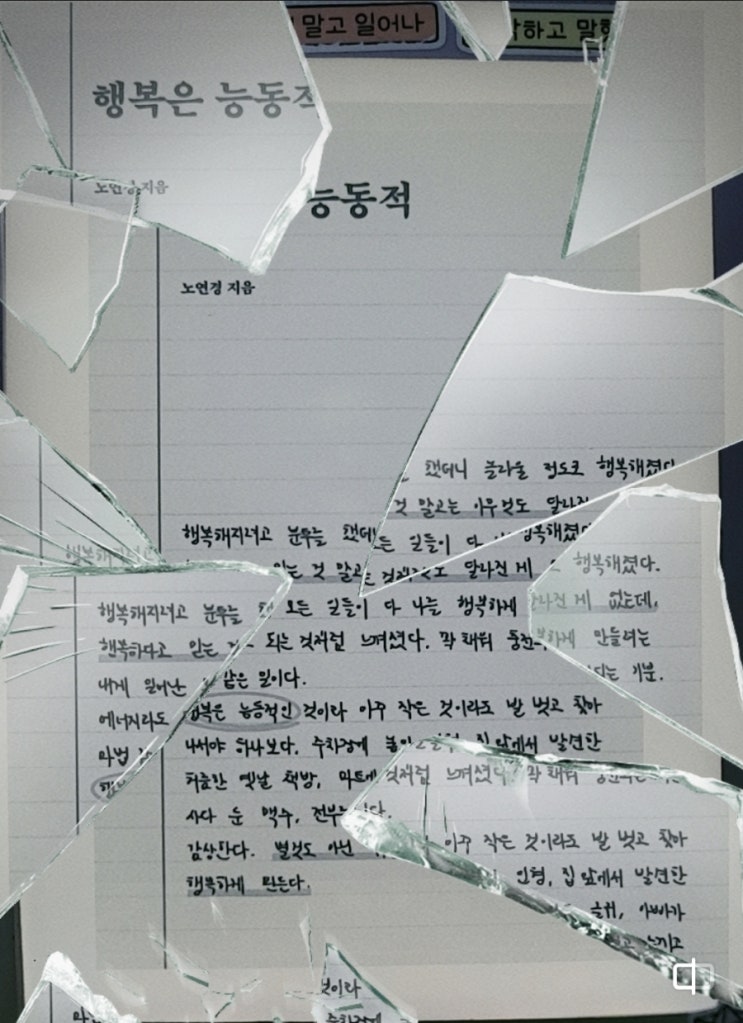 말고 일어나
하고 말
행복은 능동적
노연경 지음
능동적
노연경 지음
했더니 놀라울 정도로 행복해졌다
것 말고는 아무것도 달라진
행복해지려고 분투를 했더니
행복해졌다
믿는 것 말고는
달라진 게
행복해졌다.
행복해지려고 분투를
모든 일들이 다 나를 행복하게
달라진 게 없는데,
행복하다고 믿는
되는 것처럼 느껴졌다. 꽉 채워 충전
만들려는
내게 일어난
같은 일이다.
되는 기분.
에너지라도
행복은 능동적인 것이라 아주 작은 것이라도 발 벗고 찾아
마법
나서야 하나보다.
집 앞에서 발견한
허름한 옛날 책방, 마트에
것처럼 느껴졌다. 꽉 채워
사다 둔 맥주, 전부
감상한다. 별것도 아닌
아주 작은 것이라도 발 벗고 찾아
행복하게 만든다.
인형, 집 앞에서 발견한
아빠가
것이라